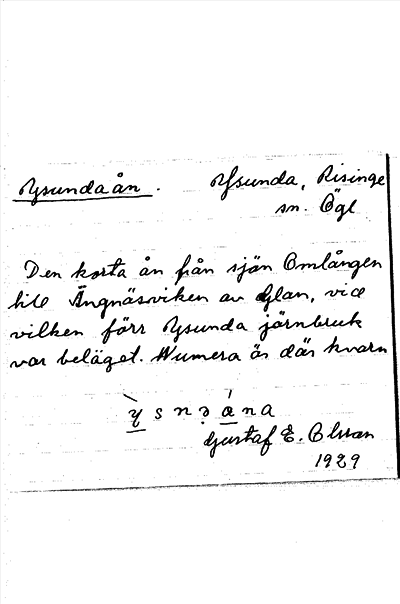 Ysundaån. Ysunda, Risinge
sn. Ögl
Den korta ån från sjön Emlången
till Ängnäsviken av Glan, vid
vilken förr Ysunda järnbruk
var beläget. Numera är där kvarn
ỳ s n ə á n a
Gustaf E. Olsson
1929